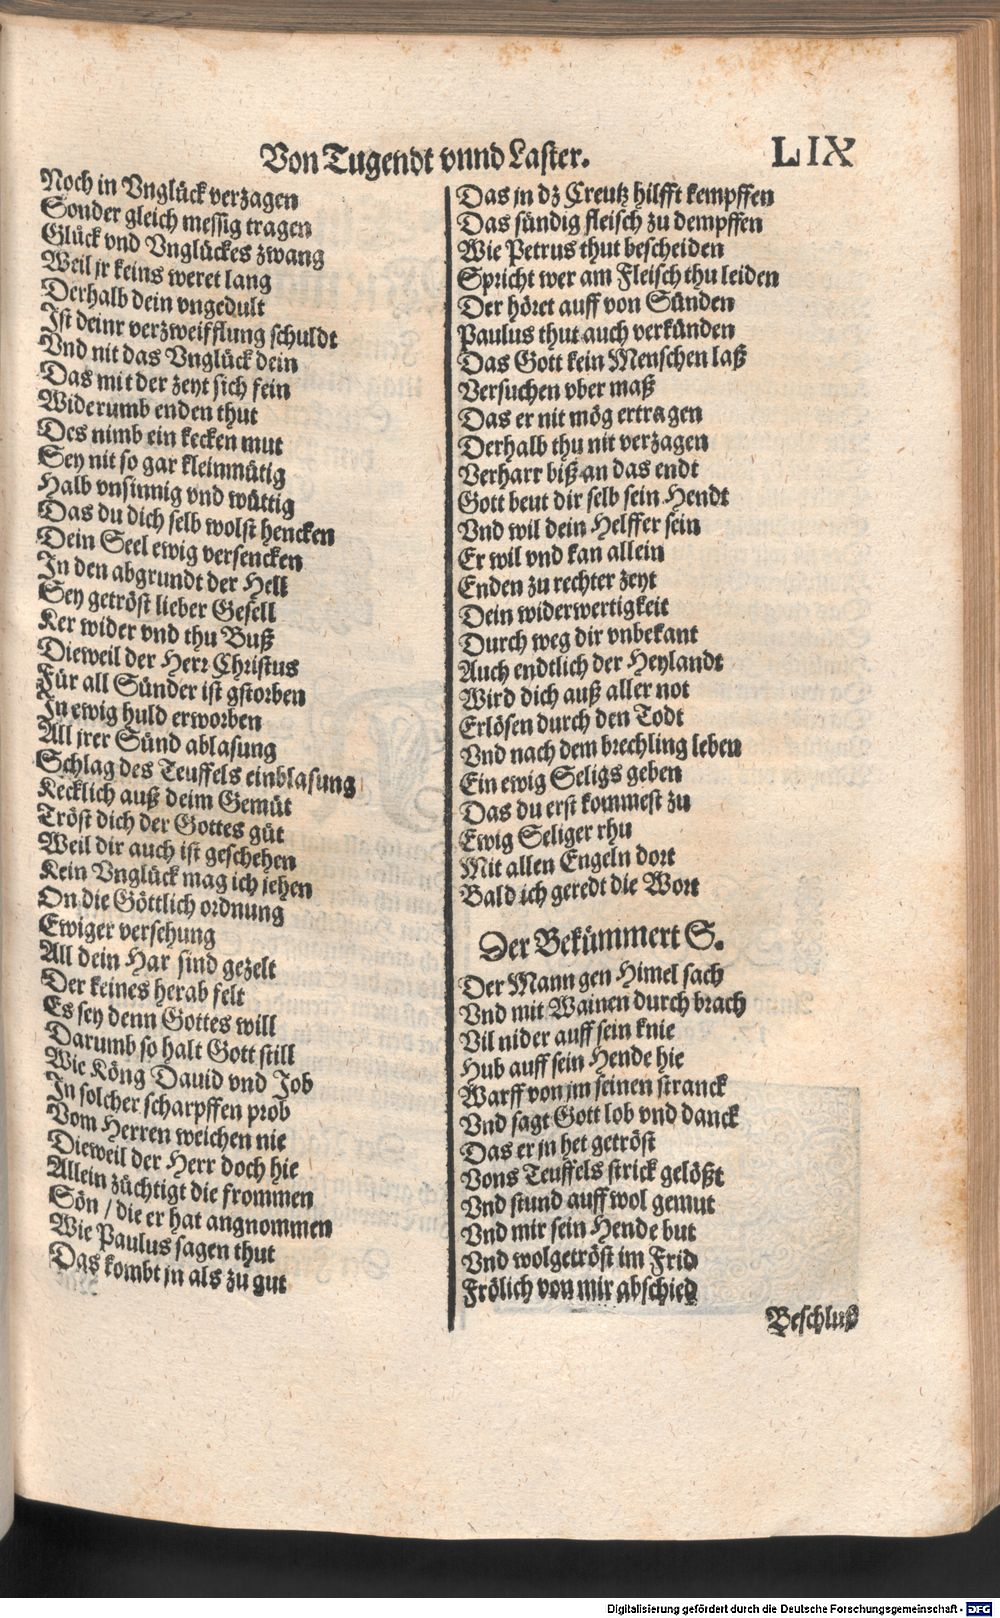 Von Tugendt vnnd Laster.
LIX
Noch in Vnglück verzagen
Sonder gleich messig tragen
Glück vnd Vnglückes zwang
Weil jr keins weret lang
Derhalb dein vngedult
Ist deinr verzweifflung schuldt
Vnd nit das Vnglück dein
Das mit der zeyt sich fein
Widerumb enden thut
Des nimb ein kecken mut
Sey nit so gar kleinmütig
Halb vnsinnig vnd wüttig
Das du dich selb wolst hencken
Dein Seel ewig versencken
In den abgrundt der Hell
Sey getröst lieber Gesell
Ker wider vnd thu Buß
Dieweil der Herr Christus
Für all Sünder ist gstorben
In ewig huld erworben
All jrer Sünd ablasung
Schlag des Teuffels einblasung
Kecklich auß deim Gemüt
Tröst dich der Gottes güt
Weil dir auch ist geschehen
Kein Vnglück mag ich jehen
On die Göttlich ordnung
Ewiger versehung
All dein Har sind gezelt
Der keines herab felt
Es sey denn Gottes will
Darumb so halt Gott still
Wie Köng Dauid vnd Job
In solcher scharpffen prob
Vom Herren weichen nie
Dieweil der Herr doch hie
Allein züchtigt die frommen
Sön / die er hat angnommen
Wie Paulus sagen thut
Das kombt jn als zu gut
Das jn dz Creutz hilfft kempffen
Das sündig fleisch zu dempffen
Wie Petrus thut bescheiden
Spricht wer am Fleisch thu leiden
Der höret auff von Sünden
Paulus thut auch verkünden
Das Gott kein Menschen laß
Versuchen vber maß
Das er nit mög ertragen
Derhalb thu nit verzagen
Verharr biß an das endt
Gott beut dir selb sein Hendt
Vnd wil dein Helffer sein
Er wil vnd kan allein
Enden zu rechter zeyt
Dein widerwertigkeit
Durch weg dir vnbekant
Auch endtlich der Heylandt
Wird dich auß aller not
Erlösen durch den Todt
Vnd nach dem brechling leben
Ein ewig Seligs geben
Das du erst kommest zu
Ewig Seliger rhu
Mit allen Engeln dort
Bald ich geredt die Wort
Der Bekümmert S.
Der Mann gen Himel sach
Vnd mit Wainen durch brach
Vil nider auff sein knie
Hub auff sein Hende hie
Warff von jm seinen stranck
Vnd sagt Gott lob vnd danck
Das er jn het getröst
Vons Teuffels strick gelößt
Vnd stund auff wol gemut
Vnd mir sein Hende but
Vnd wolgetröst im Frid
Frölich von mir abschied
Beschluß
Digitalisierung gefördert durch die Deutsche Forschungsgemeinschaft - DFG